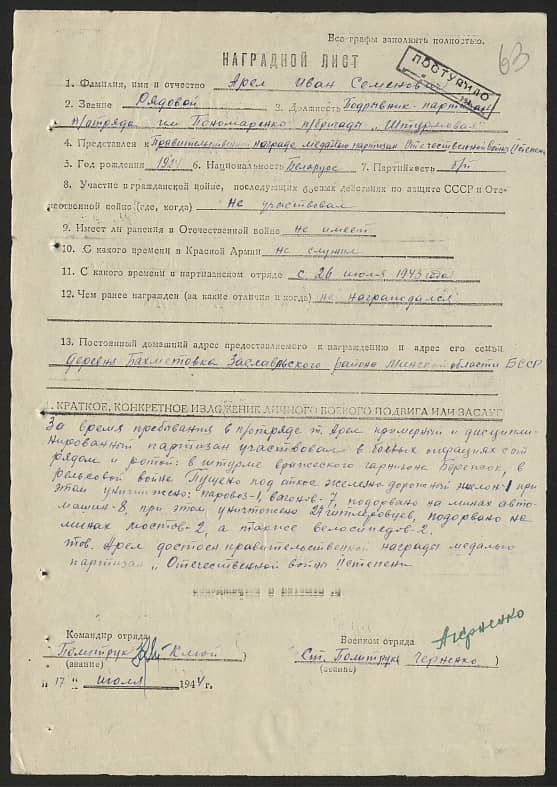 Все графы заполнить полностью.
63
НАГРАДНОЙ ЛИСТ
ПОСТУПИЛО
1. Фамилия, имя и отчество Арел Иван Семенович
2. Звание Рядовой 3. Должность Подрывник-партизан
п/отряда им Пономаренко п/бригады „Штурмовая"
4. Представлен к Правительственной награде медалью партизан Отечественной войны II степени
5. Год рождения 6. Национальность Беларус 7. Партийность б/п
8. Участие в гражданской войне, последующих боевых действиях по защите СССР и Оте-
чественной войно (где, когда) не участвовал
9. Имеет ли ранения в Отечественной войне не имеет
10. С какого времени в Красной Армии не служил
11. С какого времени в партизанском отряде с 26 июля 1943 года
12. Чем ранее награжден (за какие отличия и когда) не награждался
13. Постоянный домашний адрес предоставляемого к награждению и адрес его семьи
деревня Бахметовка Заславльского района Минской области БССР
1. КРАТКОЕ, КОНКРЕТНОЕ ИЗЛОЖЕНИЕ ЛИЧНОГО БОЕВОГО ПОДВИГА ИЛИ ЗАСЛУГ
За время пребывания в п/отряде т. Арел примерный и дисципли-
нированный партизан участвовал в боевых операциях с от
рядом и ротой: в штурме вражеского гарнизона в
рельсовой войне Пущено под откос железно-дорожный эшелон-1 при
этом уничтожено: паровоз-1, вагонов-7, подорвано на минах авто-
машин-8, при этом уничтожено гитлеровцев, подорвано на
минах мостов-2, а также велосипедов-2.
тов. Арел достоен правительственной награды медалью
партизан „Отечественной войны II степени
Командир отряда
Военком отряда
Политрук Клюй )
Ст. Политрук Черненко )
(звание)
(звание)
„17" июля 1944 г.